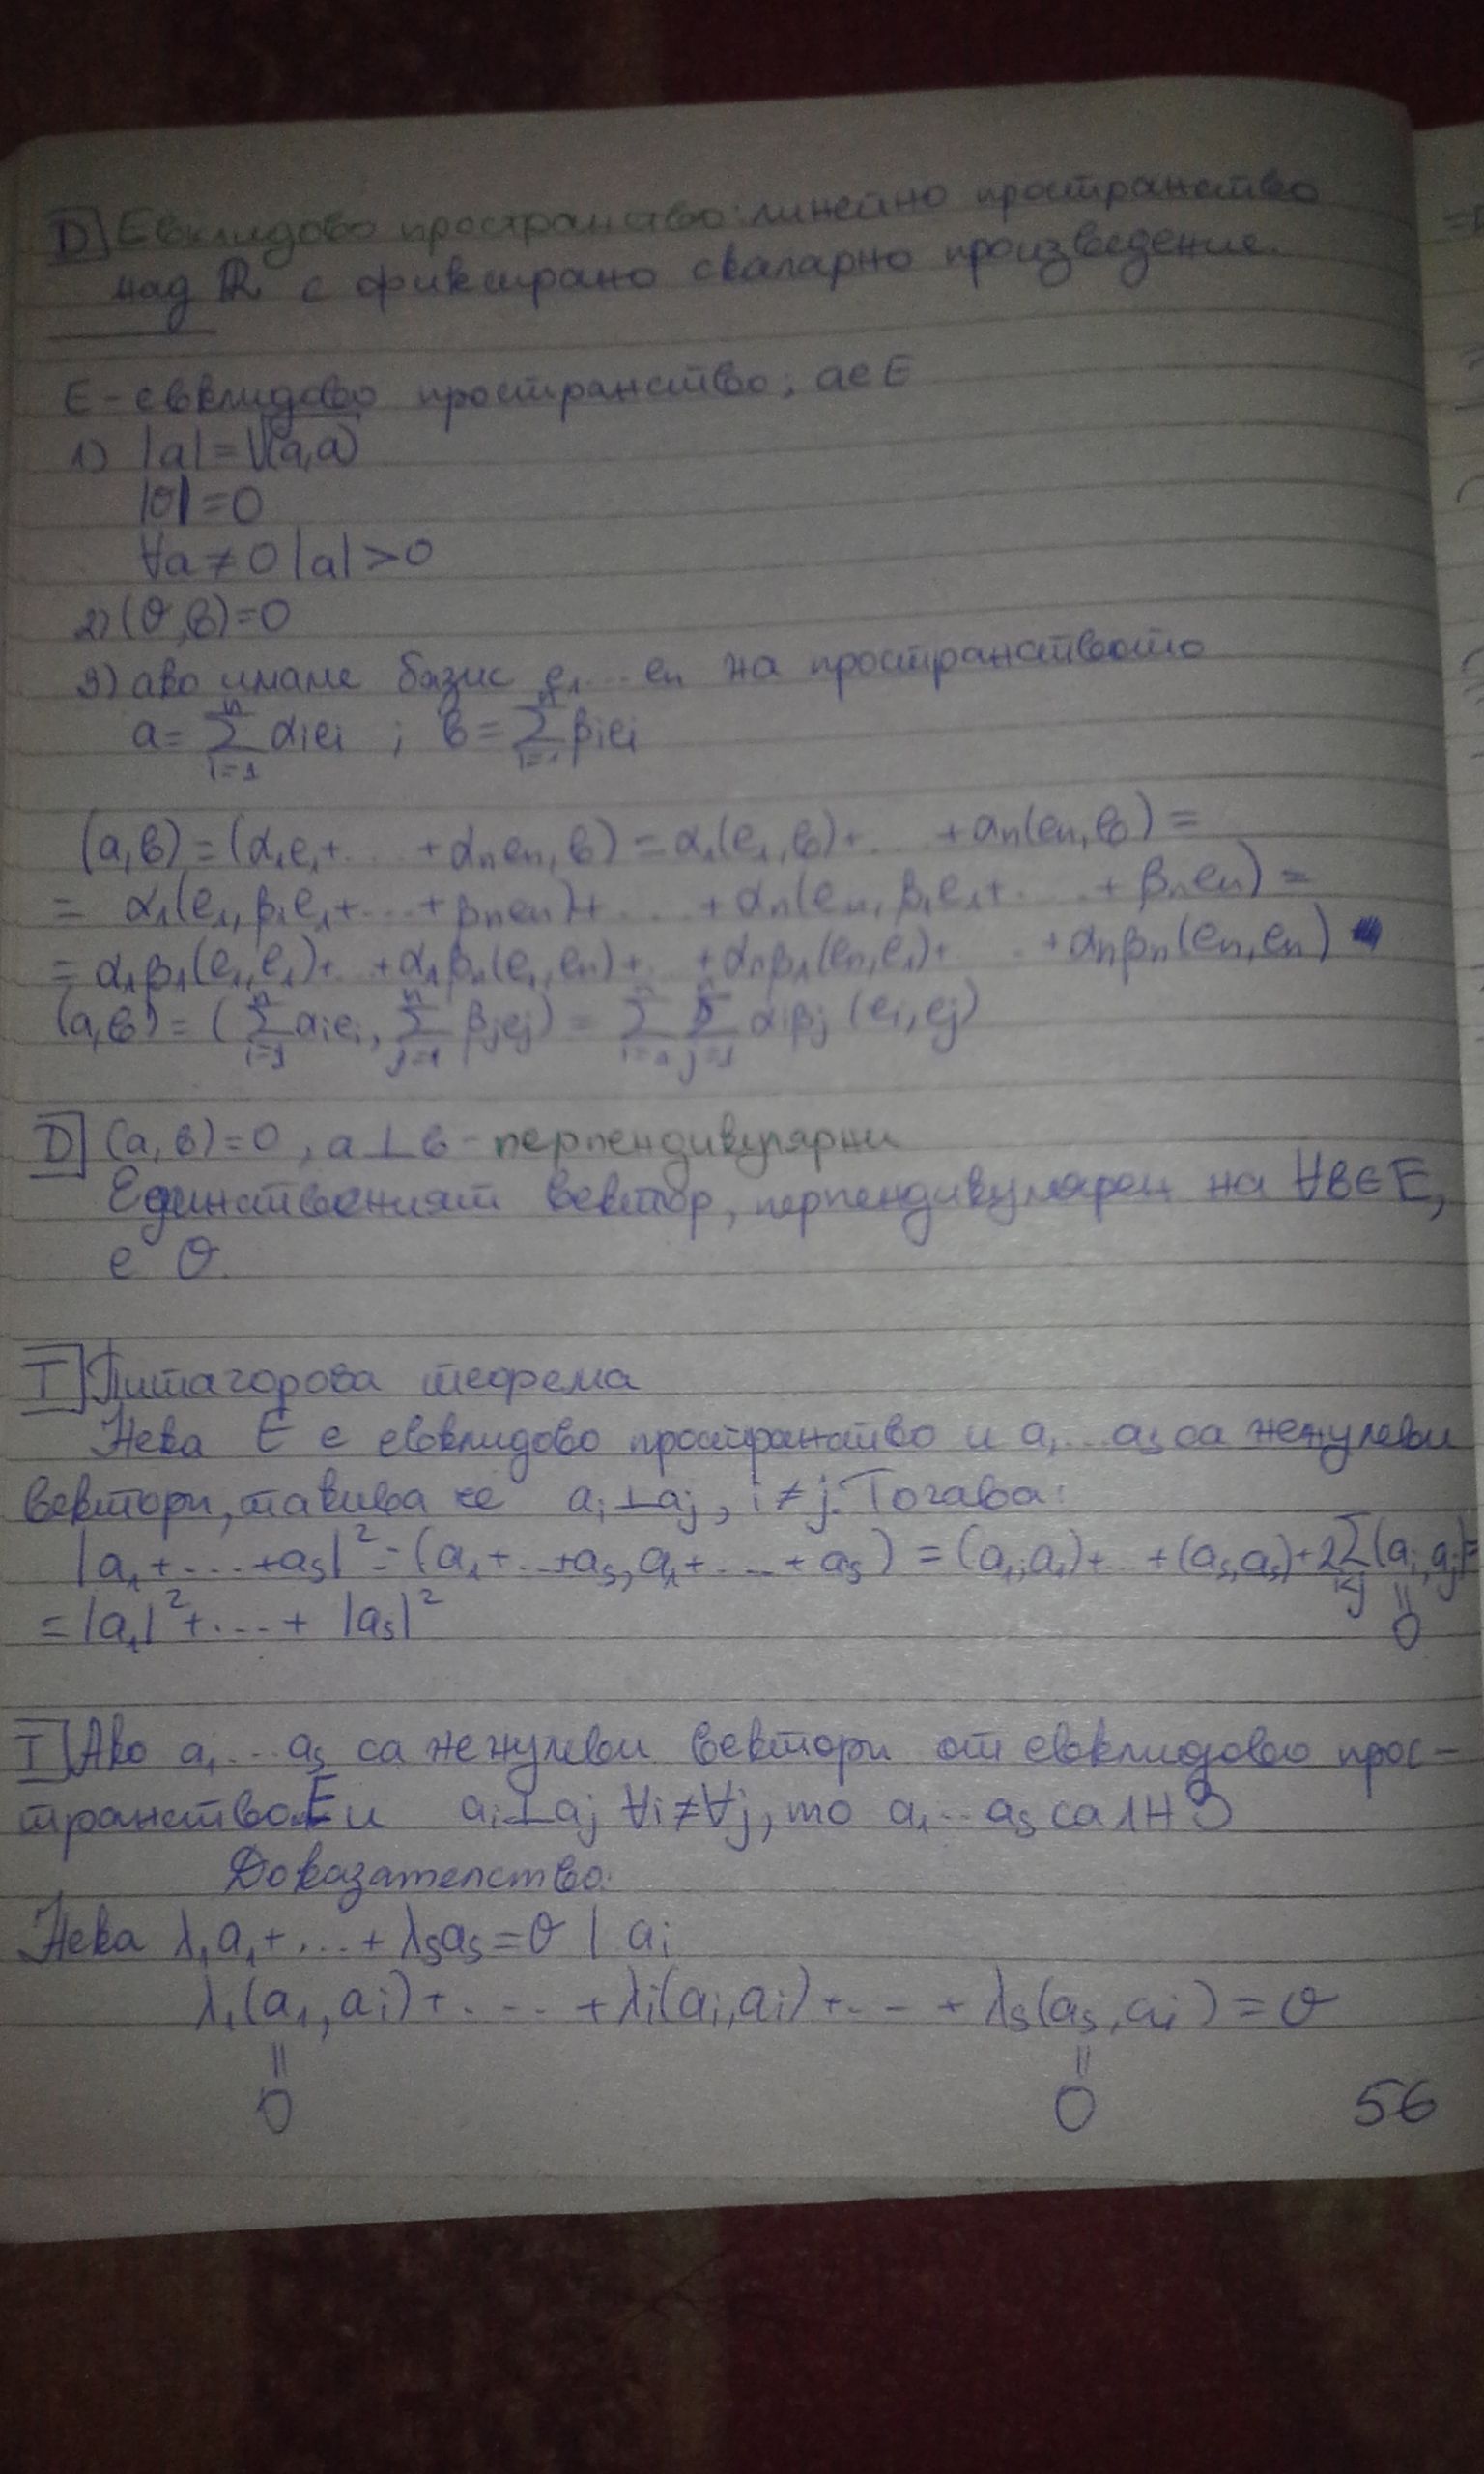 D Евклидово пространство: линейно пространство
над ℝ с фиксирано скаларно произведение.
E - евклидово пространство; a∈E
1) |a| = √(a,a)
|θ| = 0
∀a ≠ 0 |a| > 0
2) (θ,в) = 0
3) ако имаме базис e₁...eₙ на пространството
a = ∑ⁿᵢ₌₁ αᵢeᵢ ; в = ∑ⁿᵢ₌₁ βᵢeᵢ
(a,в) = (α₁e₁+...+αₙeₙ,в) = α₁(e₁,в)+...+αₙ(eₙ,в) =
= α₁(e₁,β₁e₁+...+βₙeₙ)+...+αₙ(eₙ,β₁e₁+...+βₙeₙ) =
= α₁β₁(e₁,e₁)+..+α₁βₙ(e₁,eₙ)+..+αₙβ₁(eₙ,e₁)+...+αₙβₙ(eₙ,eₙ)
(a,в) = (∑ⁿᵢ₌₁ αᵢeᵢ, ∑ⁿⱼ₌₁ βⱼeⱼ) = ∑ⁿᵢ₌₁ ∑ⁿⱼ₌₁ αᵢβⱼ (eᵢ,eⱼ)
D (a,в) = 0, a⊥в - перпендикулярни
Единственият вектор, перпендикулярен на ∀в∈E,
е θ.
T Питагорова теорема
Нека E е евклидово пространство и a₁...aₛ са ненулеви
вектори, такива че aᵢ⊥aⱼ, i≠j. Тогава:
|a₁+...+aₛ|² = (a₁+...+aₛ,a₁+...+aₛ) = (a₁,a₁)+..+(aₛ,aₛ)+2∑(aᵢ,aⱼ)=
i<j || 0
= |a₁|²+...+ |aₛ|²
T Ако a₁...aₛ са ненулеви вектори от евклидово прос-
транство E и aᵢ⊥aⱼ ∀i≠∀j, то a₁...aₛ са ЛНЗ
Доказателство:
Нека λ₁a₁+...+λₛaₛ=θ | aᵢ
λ₁(a₁,aᵢ)+...+λᵢ(aᵢ,aᵢ)+...+λₛ(aₛ,aᵢ)=θ
|| ||
0 0
56